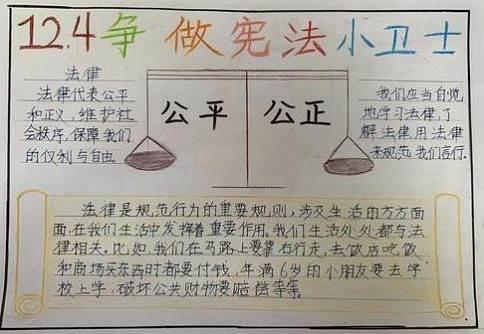 12.4争做宪法小卫士
法律
法律代表公平
和正义，维护社
会秩序，保障我们
的权利与自由
公平
公正
我们应当自觉
地学习法律，了
解法律用法律
来规范我们言行。
法律是规范行为的重要规则，涉及生活的方方面
面，在我们生活中发挥着重要作用。我们生活处处都与法
律相关。比如我们在马路上要靠右行走，去饭店吃饭
和商场买东西时都要付钱，年满6岁的小朋友要去学
校上学，破坏公共财物要赔偿等等。